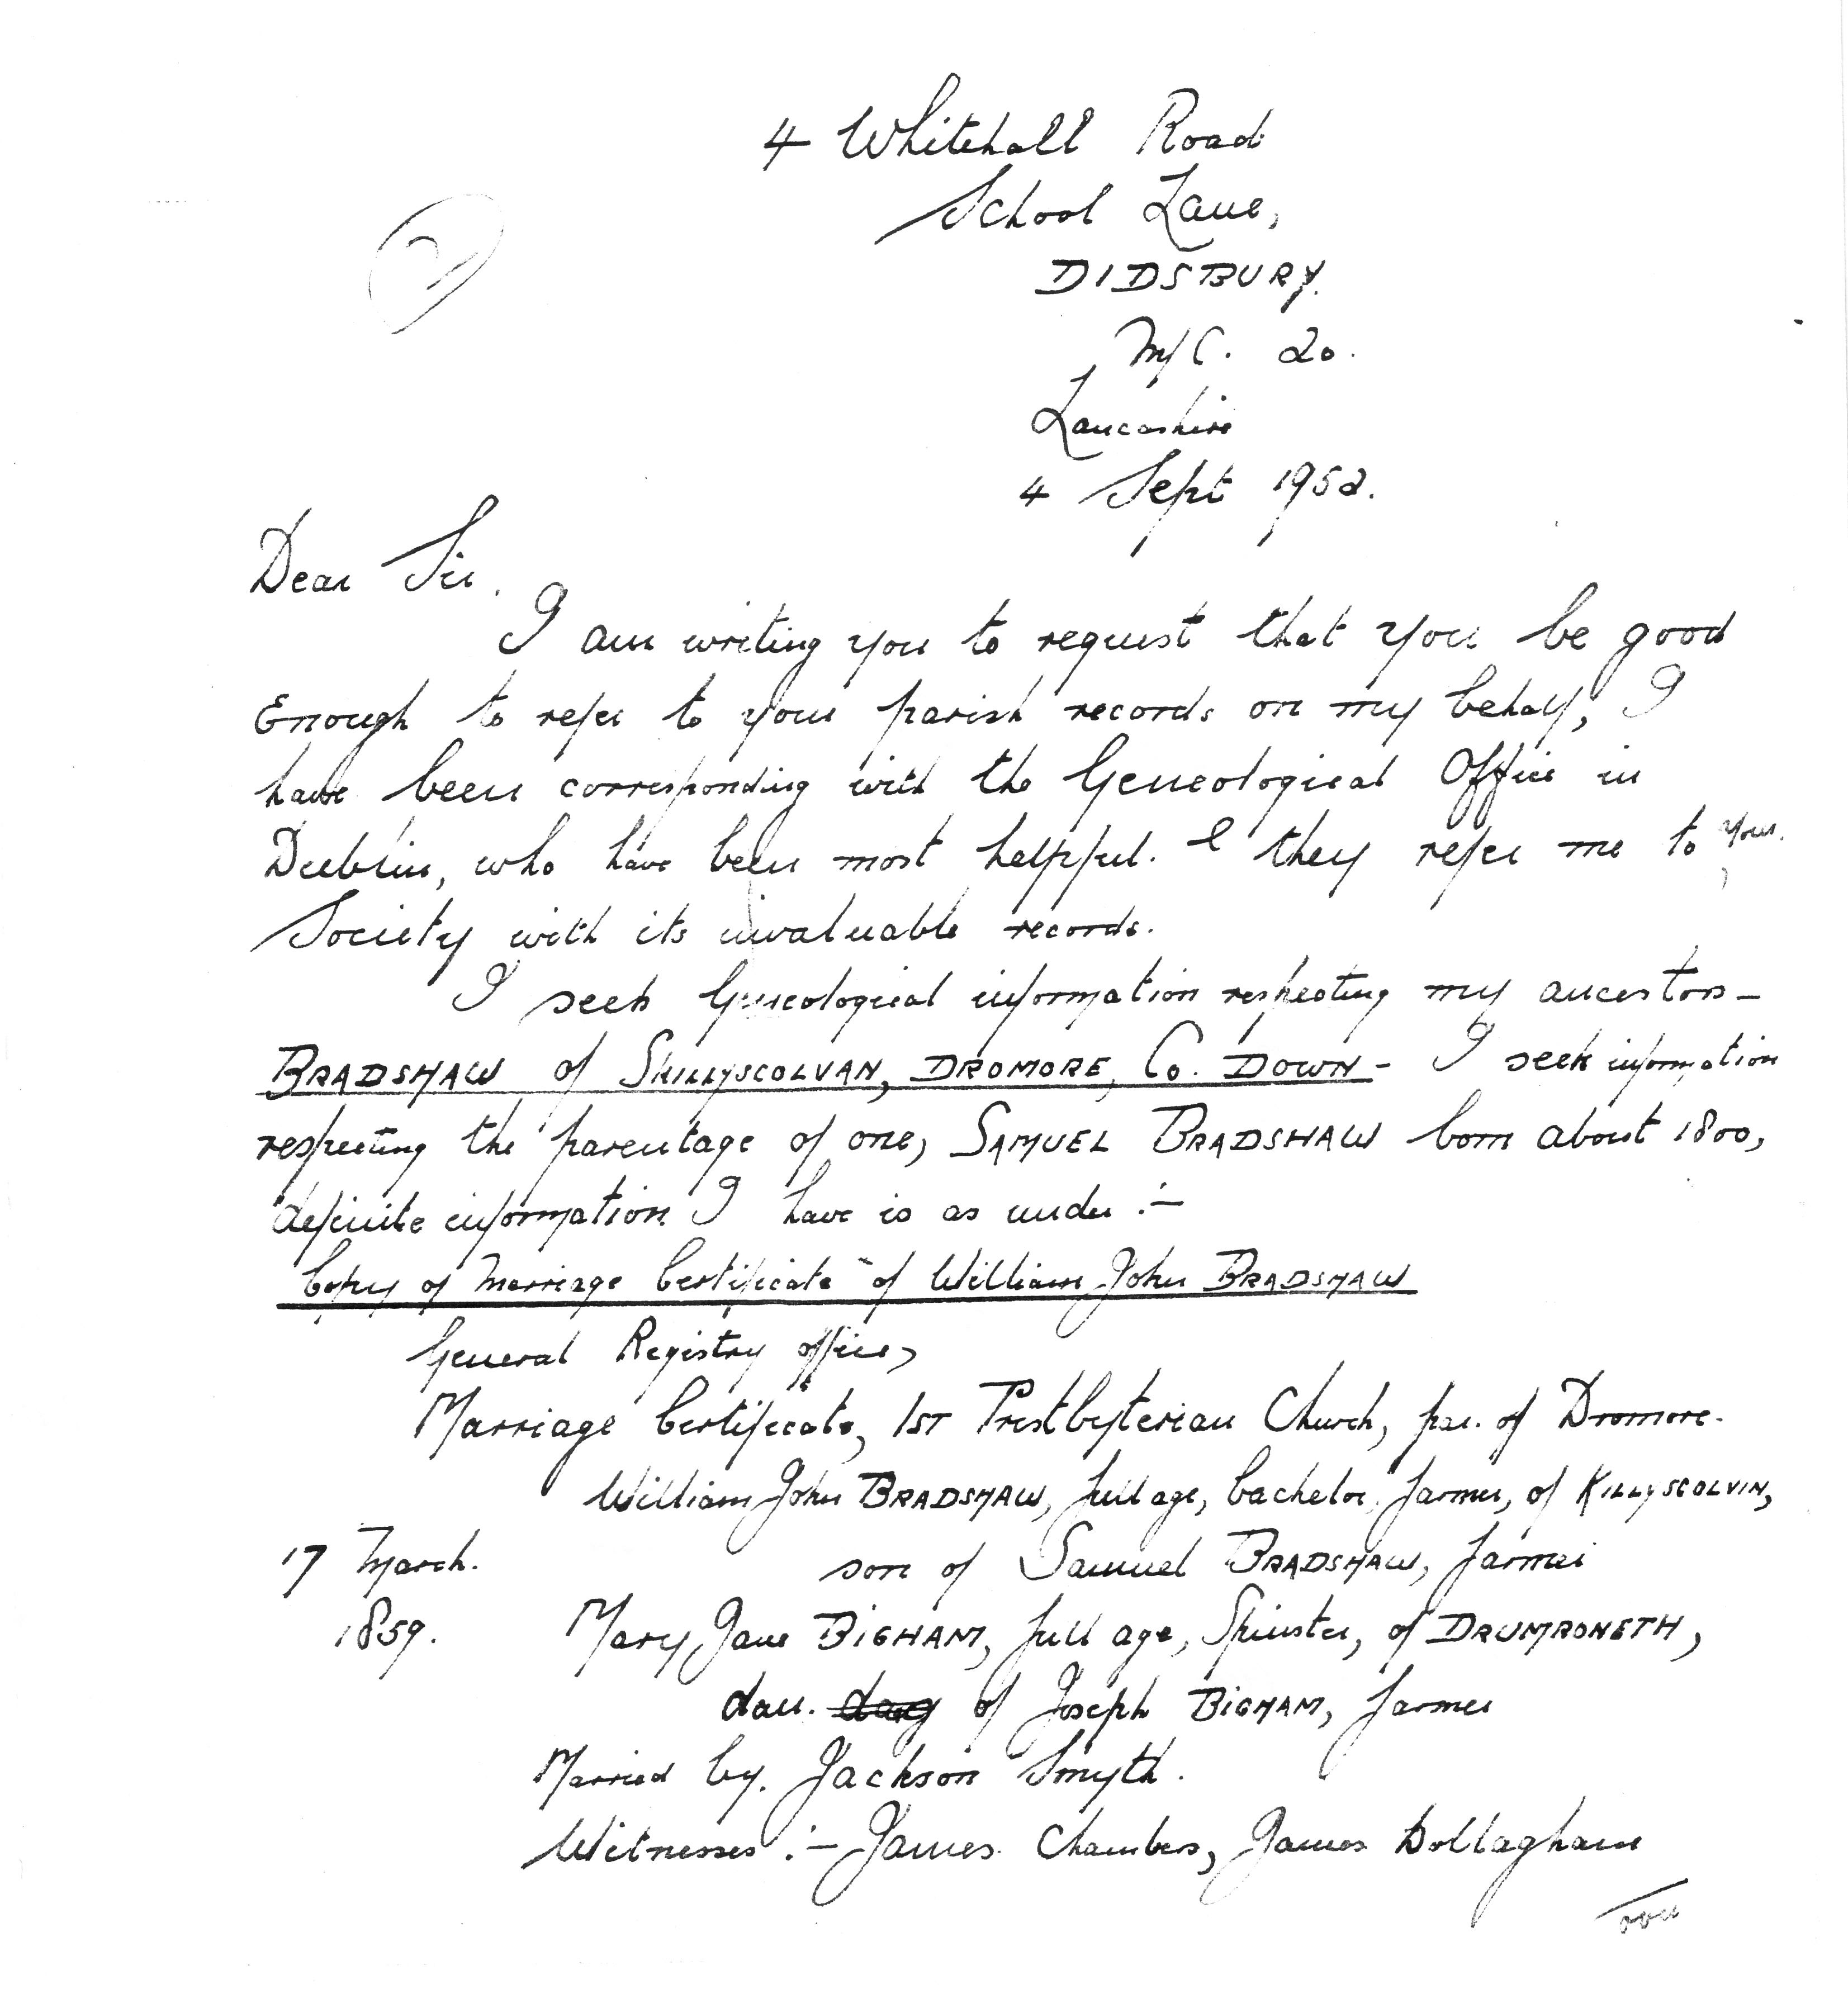 4 Whitehall Road
School Lane,
DIDSBURY.
M/C. 20.
Lancashire
4 Sept 1952.
2
Dear Sir.
I am writing you to request that you be good
Enough to refer to your parish records on my behalf, I
have been corresponding with the Geneological Office in
Dublin, who have been most helpful. & they refer me to your
Society with its invaluable records.
I seek Geneological information respecting my ancestors -
BRADSHAW of SKILLYSCOLVAN, DROMORE, Co. DOWN - I seek information
respecting the parentage of one, SAMUEL BRADSHAW born about 1800,
definite information I have is as under :-
Copy of Marriage Certificate of William John BRADSHAW
General Registry office,
Marriage Certificate, 1ST Presbyterian Church, par. of Dromore.
William John BRADSHAW, full age, bachelor, farmer, of KILLYSCOLVIN,
17 March. son of Samuel BRADSHAW, farmer
1859. Mary Jane BIGHAM, full age, Spinster, of DRUMRONETH,
dau. dag of Joseph BIGHAM, farmer
Married by. Jackson Smyth.
Witnesses :- James Chambers, James Dollaghan